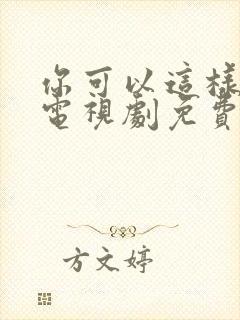 你可以這樣
電視劇免費
方文婷